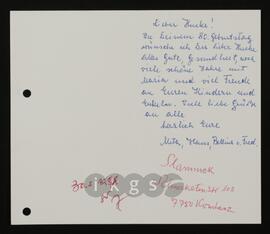 Lieber Hucke!
Zu Deinem 80. Geburtstag
wünsche ich Dir lieber Hucke
alles Gute, Gesundheit, noch
viele schöne Jahre mit
Maria und viel Freude
an Euren Kindern und
Enkeln. Viele liebe Grüße
an alle
herzlich Eure
Mitzi, Hans, Bettina u. Fred.
ikgs
103
7750 Konstanz